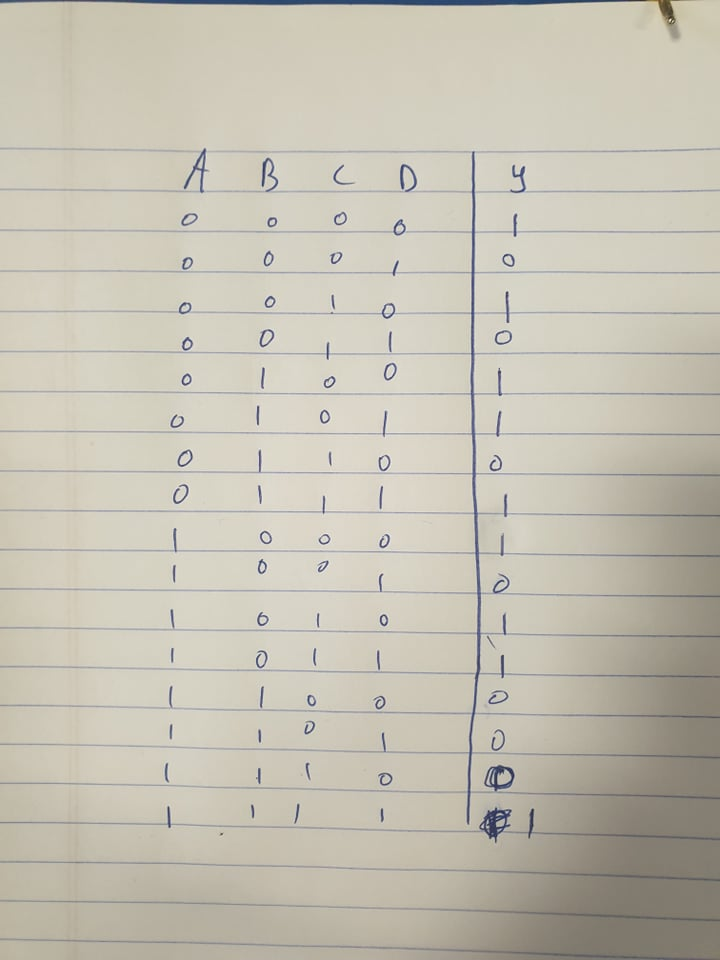 A B C D y
0 0 0 0 1
0 0 0 1 0
0 0 1 0 1
0 0 1 1 0
0 1 0 0 1
0 1 0 1 1
0 1 1 0 0
0 1 1 1 1
1 0 0 0 1
1 0 0 1 0
1 0 1 0 1
1 0 1 1 1
1 1 0 0 0
1 1 0 1 0
1 1 1 0 0
1 1 1 1 1